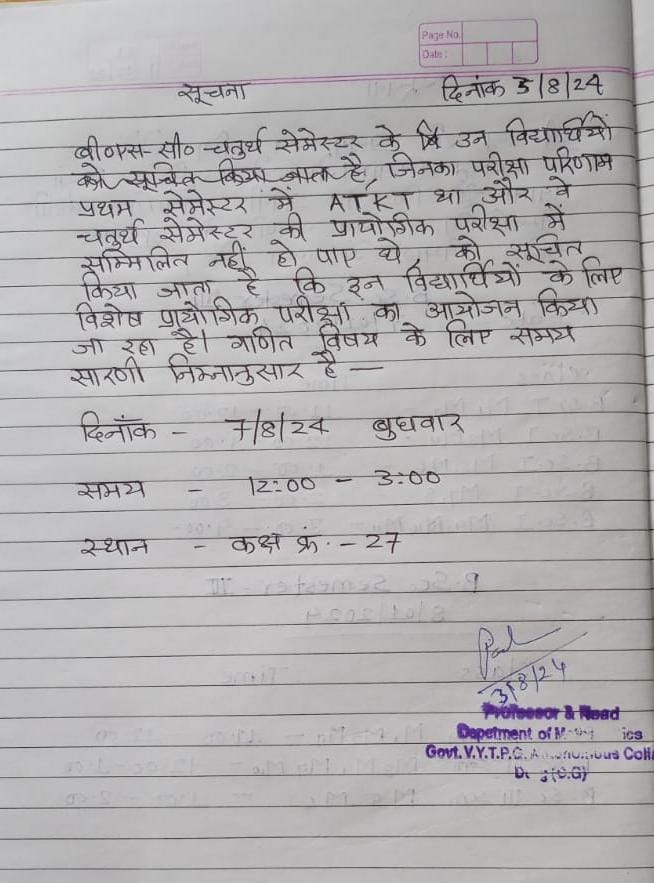 Page No.
Date :
सूचना दिनांक 3/8/24
बी०एस-सी० चतुर्थ सेमेस्टर के उन विद्यार्थियों
को सूचित किया जाता है, जिनका परीक्षा परिणाम
प्रथम सेमेस्टर में ATKT था और वे
चतुर्थ सेमेस्टर की प्रायोगिक परीक्षा में
सम्मिलित नहीं हो पाए थे, को सूचित
किया जाता है कि इन विद्यार्थियों के लिए
विशेष प्रायोगिक परीक्षा का आयोजन किया
जा रहा है। गणित विषय के लिए समय
सारणी निम्नानुसार है —
दिनाँक - 7/8/24 बुधवार
समय - 12:00 - 3:00
स्थान - कक्ष क्रं. - 27
3/8/24
Professor & Head
Depetment of
Govt. V.Y.T.P.G.
(C.G)